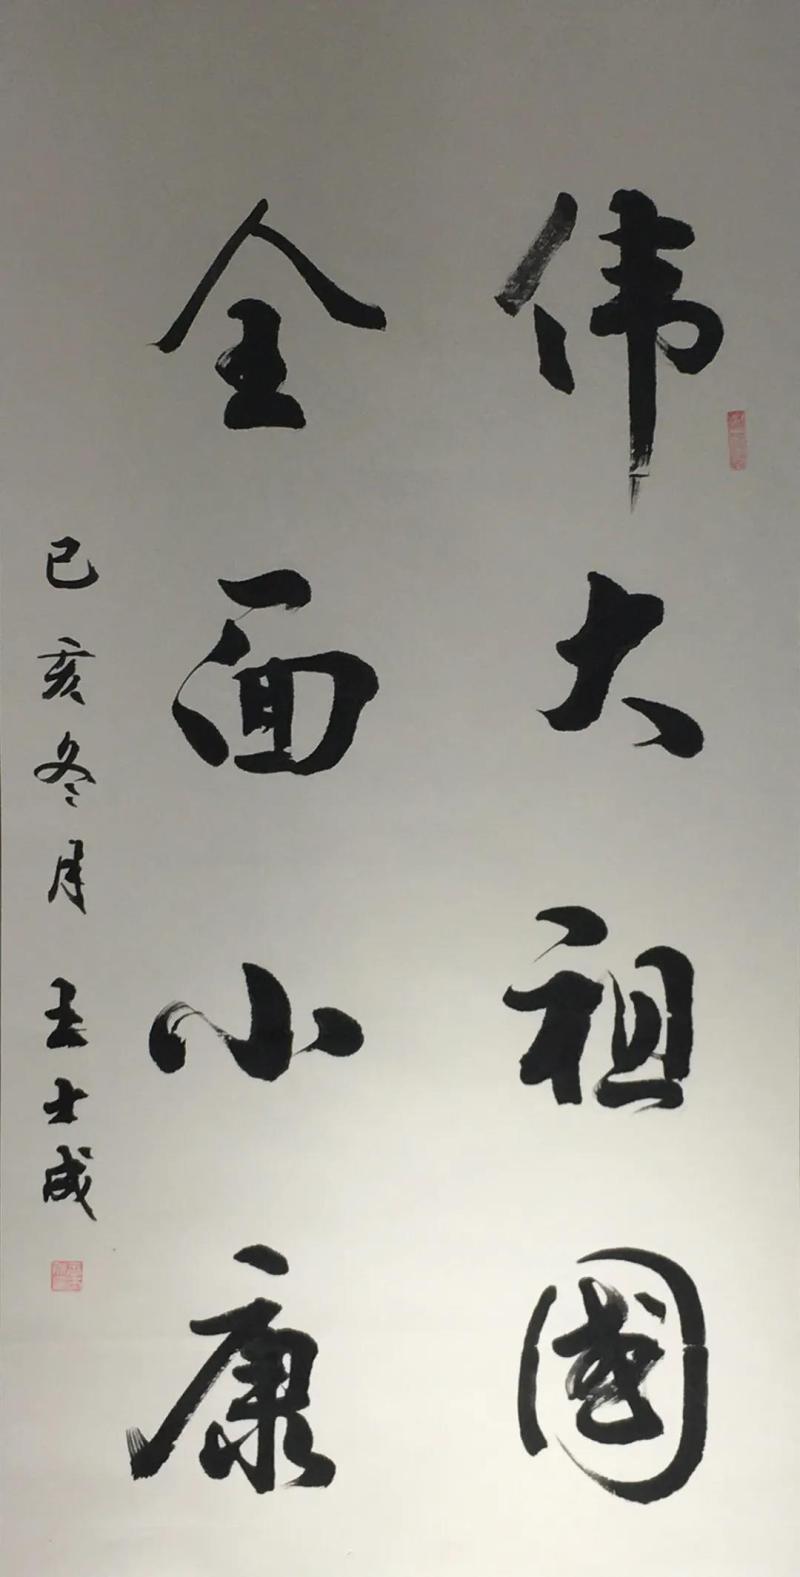 伟大祖國
全面小康
己亥冬月 王士成